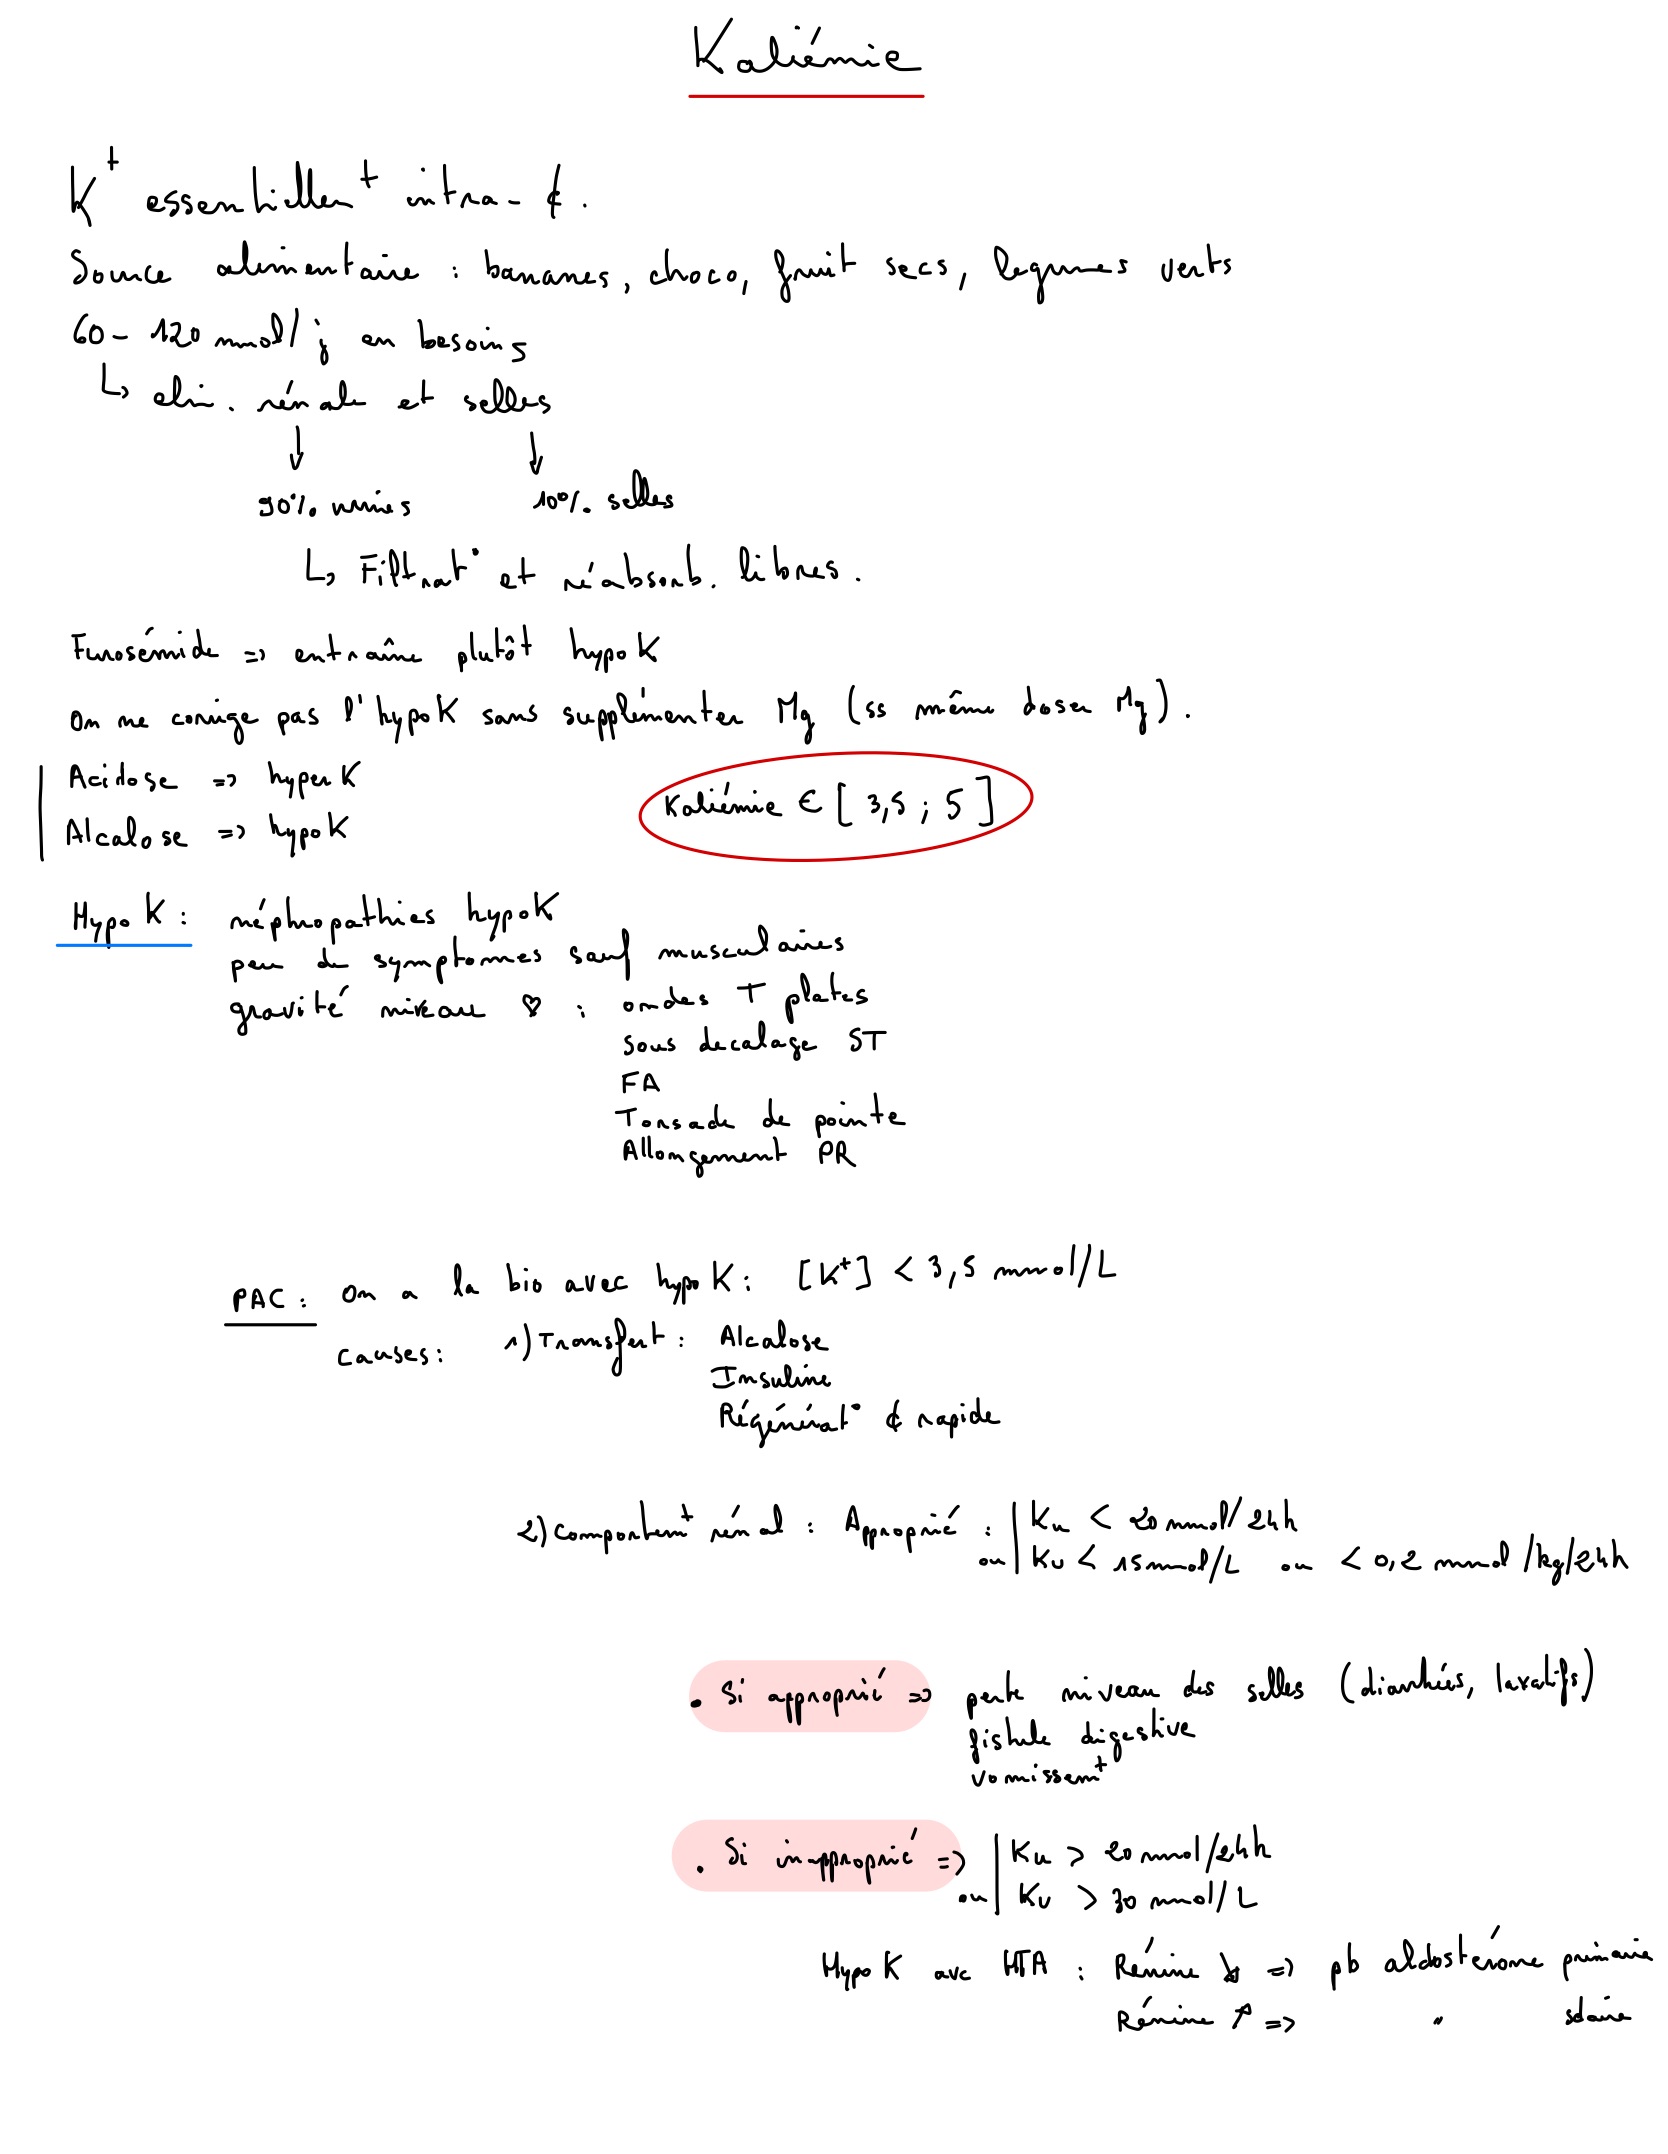 Kaliémie
K⁺ essentiellem^t intra-¢.
Source alimentaire : bananes, choco, fruit secs, legumes verts
60 - 120 mmol/j en besoins
↳ elim. rénale et selles
↓ ↓
90% urines 10% selles
↳ Filtrat° et réabsorb. libres.
Furosémide => entraîne plutôt hypoK
On ne corrige pas l'hypoK sans supplémenter Mg (ss même doser Mg).
Acidose => hyperK
Kaliémie ∈ [ 3,5 ; 5 ]
Alcalose => hypoK
Hypo K : néphropathies hypoK
peu de symptomes sauf musculaires
gravité niveau ♡ : ondes T plates
sous decalage ST
FA
Torsade de pointe
Allongement PR
PAC : On a la bio avec hypo K : [K⁺] < 3,5 mmol/L
causes : 1) Transfert : Alcalose
Insuline
Régénérat° ¢ rapide
2) Comportem^t rénal : Approprié : | Ku < 20 mmol/24h
ou | Ku < 15 mmol/L ou < 0,2 mmol/kg/24h
. Si approprié => perte niveau des selles (diarrhées, laxatifs)
fistule digestive
vomissem^t
. Si inapproprié => | Ku > 20 mmol/24h
ou | Ku > 30 mmol/L
Hypo K avc HTA : Rénine ↘ => pb aldostérone primaire
Rénine ↗ => " sdaire